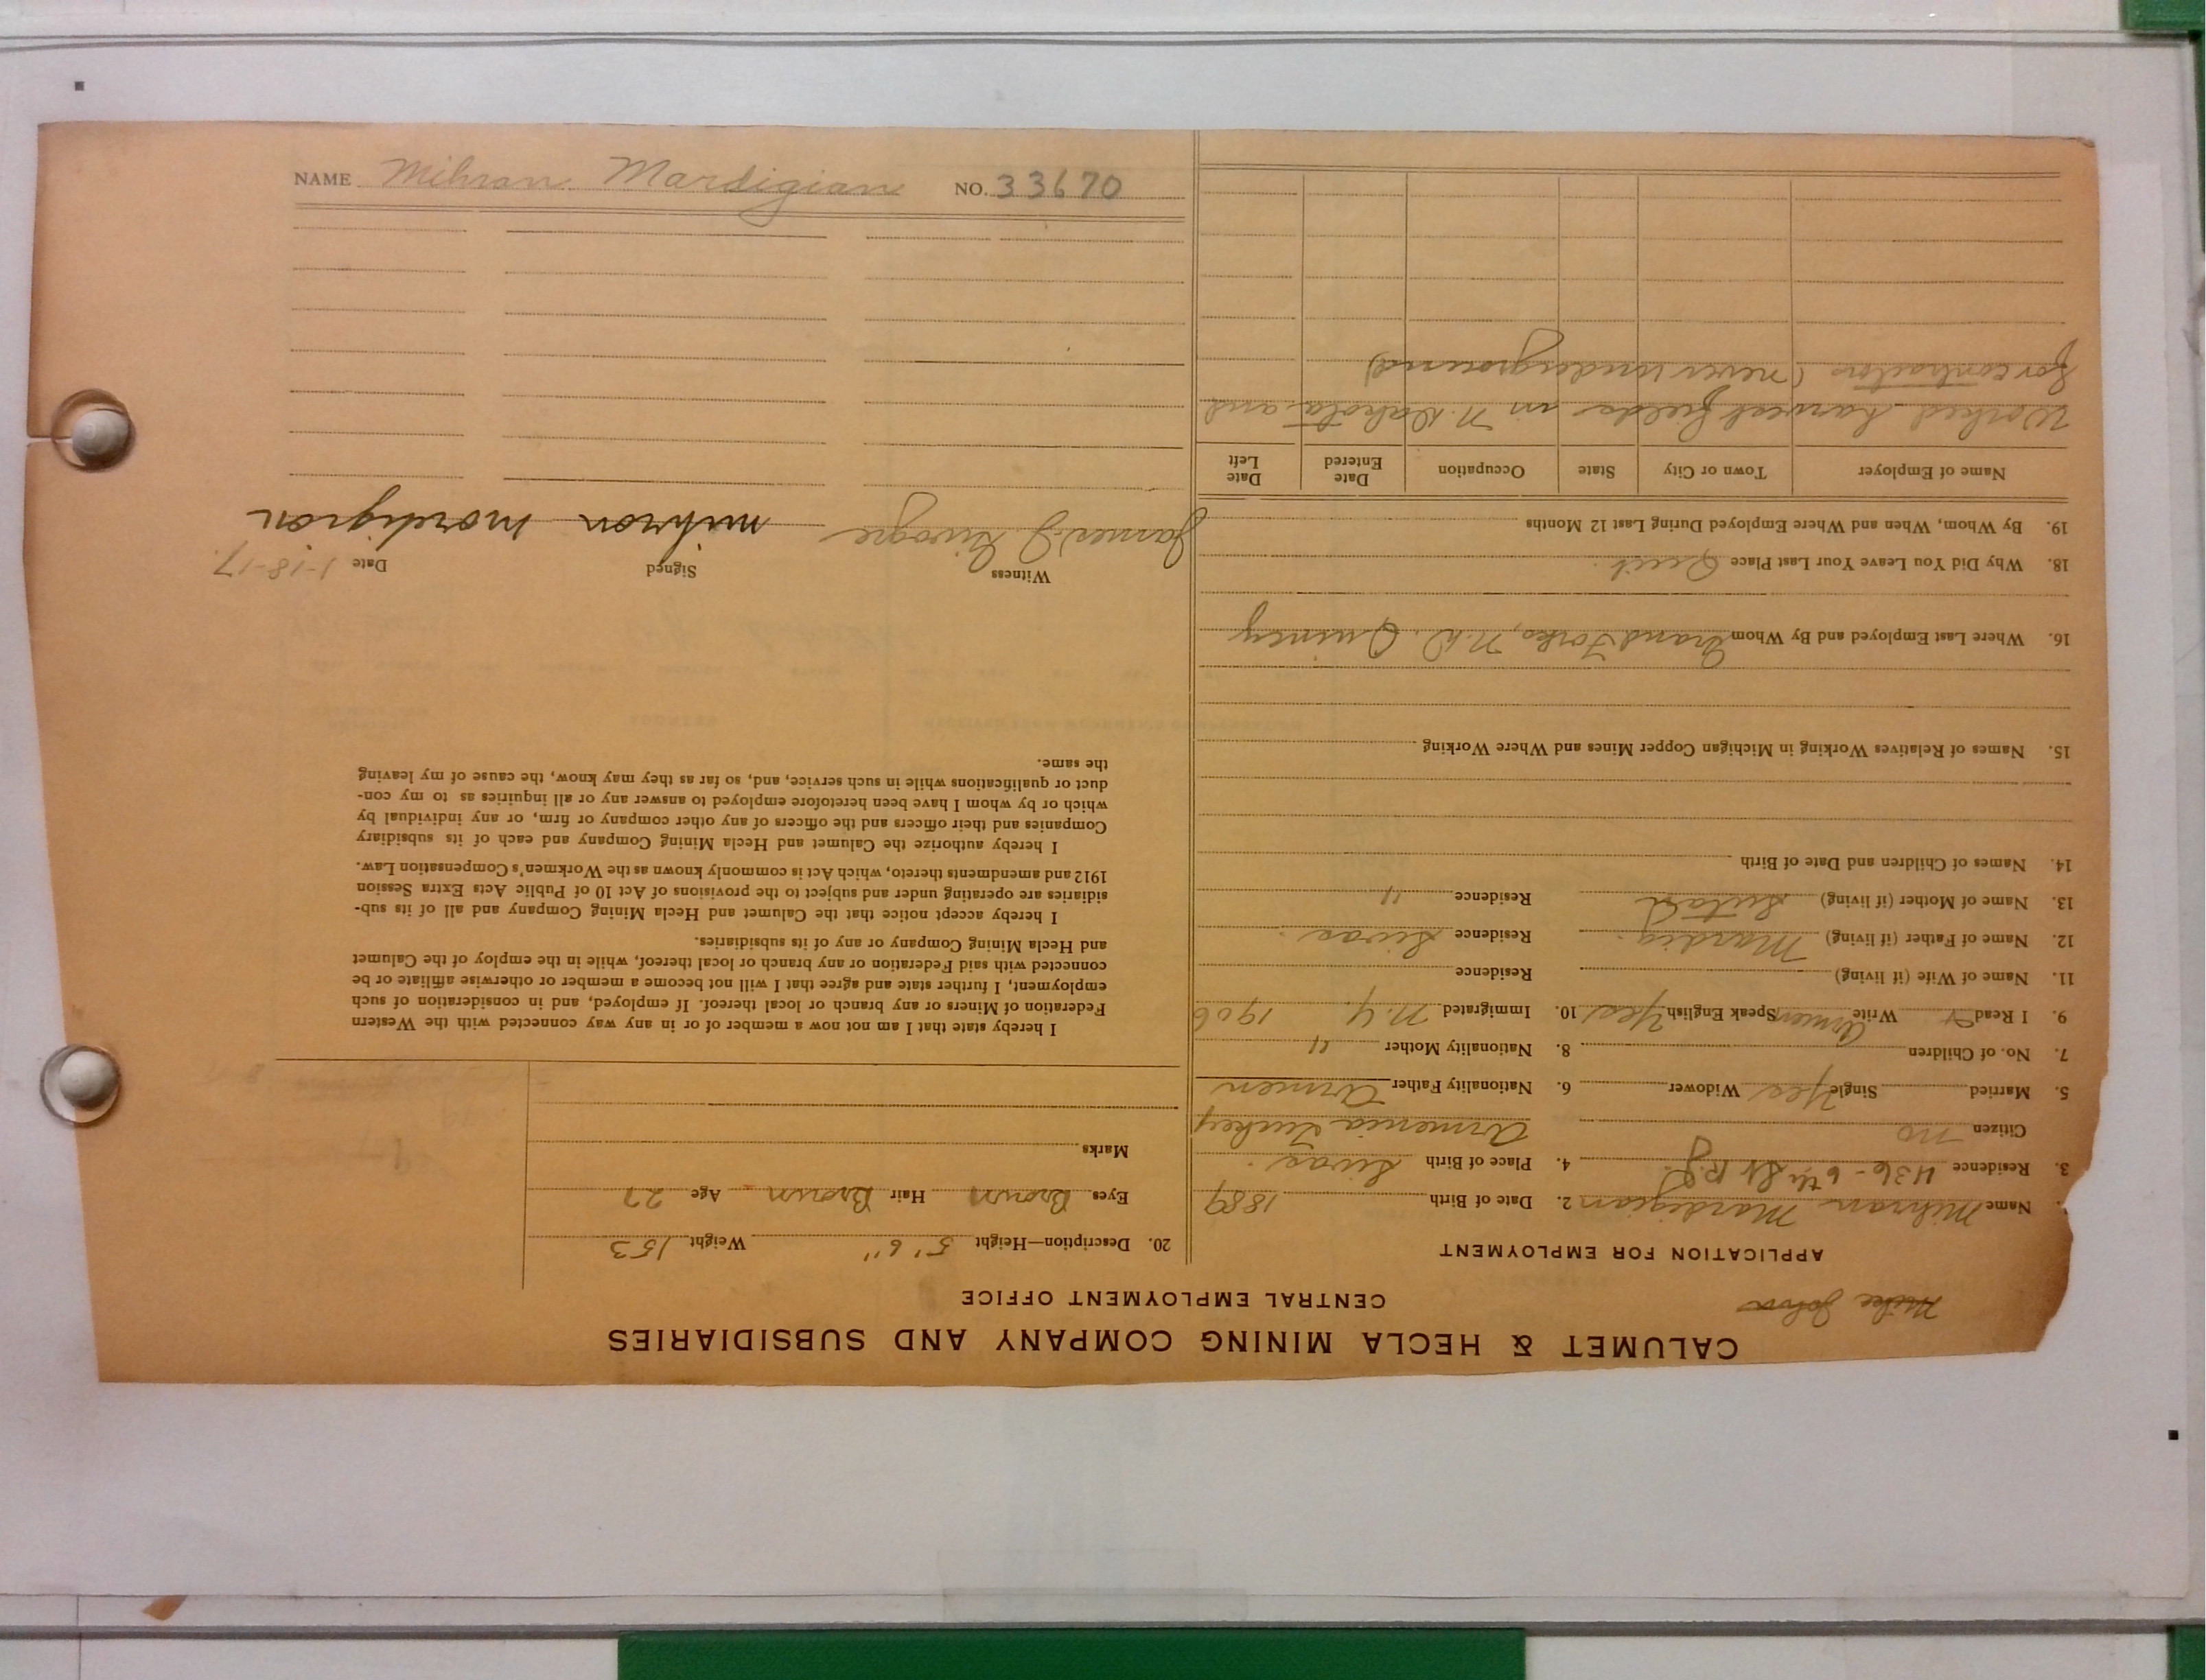 CALUMET & HECLA MINING COMPANY AND SUBSIDIARIES
Mike John
CENTRAL EMPLOYMENT OFFICE
APPLICATION FOR EMPLOYMENT
Name Mihran Mardigian 2. Date of Birth 1889
3. Residence 436-6th St R.J. 4. Place of Birth Sivas.
Citizen no Armenia Turkey
5. Married Single Yes Widower 6. Nationality Father Armen
7. No. of Children 8. Nationality Mother "
9. I Read & Write Armen Speak English Yes 10. Immigrated N.Y. 1906
11. Name of Wife (if living) Residence
12. Name of Father (if living) Mardig. Residence Sivas.
13. Name of Mother (if living) Residence "
14. Names of Children and Date of Birth
15. Names of Relatives Working in Michigan Copper Mines and Where Working
16. Where Last Employed and By Whom Grand Forks, N.D. Quincy
18. Why Did You Leave Your Last Place Quit.
19. By Whom, When and Where Employed During Last 12 Months
Name of Employer Town or City State Occupation Date Entered Date Left
Worked harvest fields in N. Dakota and
for contractors (never underground)
20. Description—Height 5'6" Weight 153
Eyes Brown Hair Brown Age 27
Marks
I hereby state that I am not now a member of or in any way connected with the Western
Federation of Miners or any branch or local thereof. If employed, and in consideration of such
employment, I further state and agree that I will not become a member or otherwise affiliate or be
connected with said Federation or any branch or local thereof, while in the employ of the Calumet
and Hecla Mining Company or any of its subsidiaries.
I hereby accept notice that the Calumet and Hecla Mining Company and all of its sub-
sidiaries are operating under and subject to the provisions of Act 10 of Public Acts Extra Session
1912 and amendments thereto, which Act is commonly known as the Workmen's Compensation Law.
I hereby authorize the Calumet and Hecla Mining Company and each of its subsidiary
Companies and their officers and the officers of any other company or firm, or any individual by
which or by whom I have been heretofore employed to answer any or all inquiries as to my con-
duct or qualifications while in such service, and, so far as they may know, the cause of my leaving
the same.
Witness Signed Date 1-18-17.
James J. mihron mordigion
NAME Mihran Mardigian NO. 33670